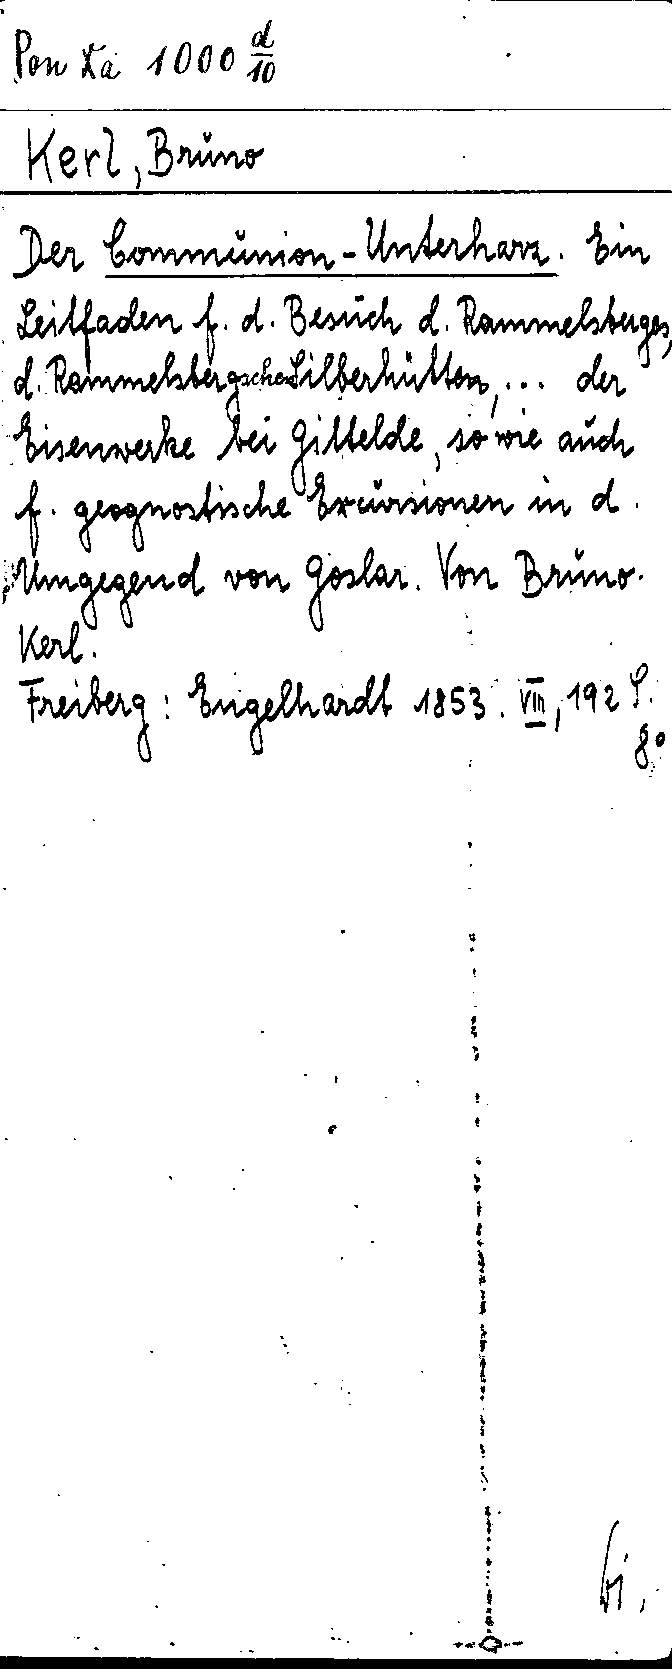 Pon Za 1000 d/10
Kerl, Bruno
Der Communion-Unterharz. Ein
Leitfaden f. d. Besuch d. Rammelsberges,
d. Rammelsbergschen Silberhütten, ... der
Eisenwerke bei Gittelde, so wie auch
f. geognostische Excursionen in d.
Umgegend von Goslar. Von Bruno
Kerl.
Freiberg: Engelhardt 1853. VIII, 192 S.
8°
bi.